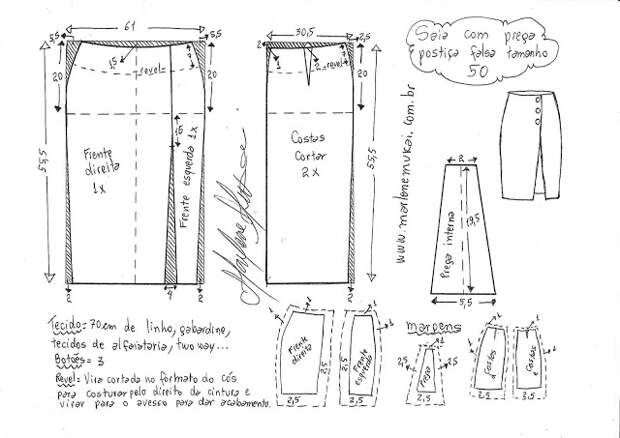 61
5,5
5,5
30,5
2,5
Saia com prega
postiça falsa tamanho
50
20
15
revel=
2
20
1
2
revel
2
20
www.marlenemukai.com.br
55,5
15
Frente
direita
1x
Frente esquerda 1x
Costas
Cortar
2x
55,5
2
19,5
Prega interna
5,5
2
4
2
2
Tecido= 70cm de linho, gabardine,
tecidos de alfaiataria, two way...
Botões= 3
Revel= Vira cortada no formato do cós
para costurar pelo direito da cintura e
virar para o avesso para dar acabamento.
1
1
Frente
direita
2,5
2,5
1
1
Frente
esquerda
2,5
2,5
margens
1
1
2,5
2,5
Prega
2,5
1
1
Costas
d
2,5
2,5
1
1
Costas
e
2,5
3,5